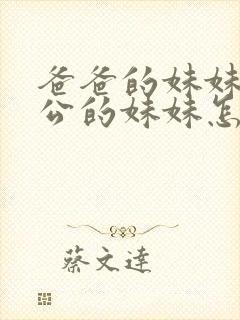 爸爸的妹妹
公的妹妹怎
蔡文達